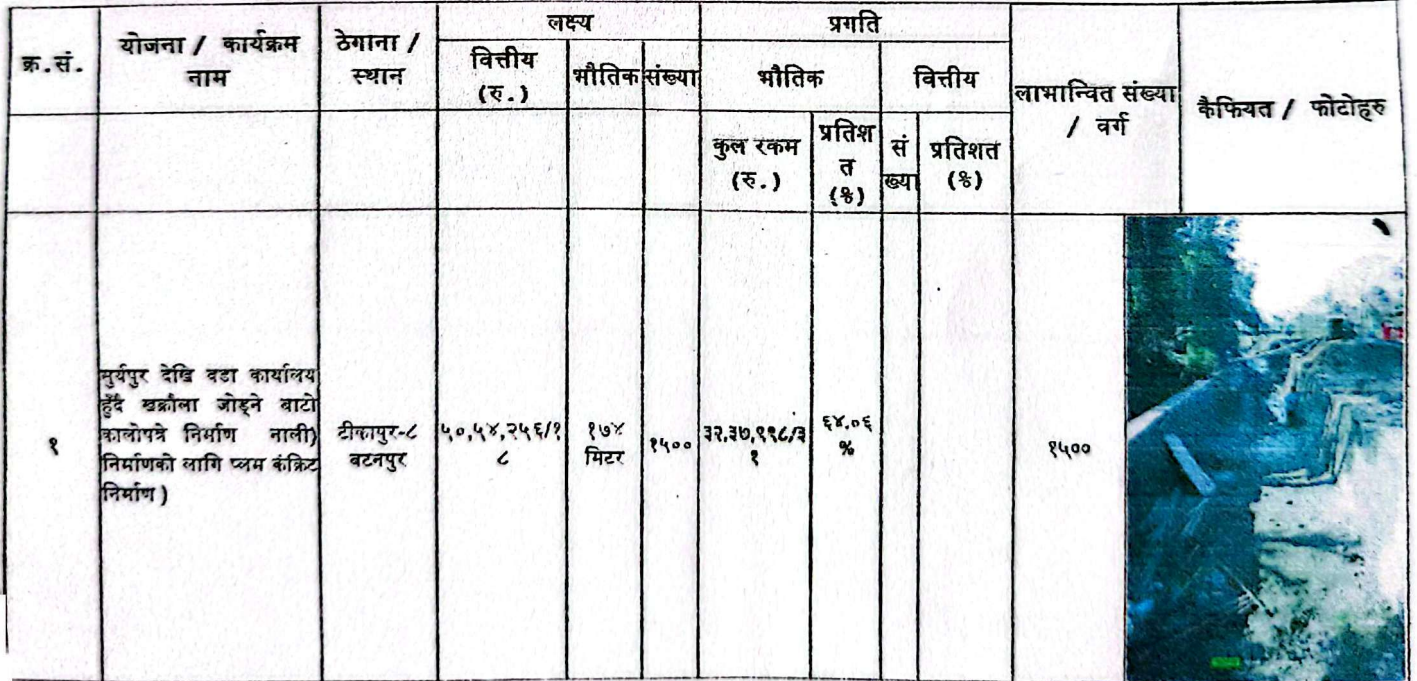 क्र.सं.
योजना / कार्यक्रम
नाम
ठेगाना /
स्थान
लक्ष्य
वित्तीय
(रु.)
भौतिक
संख्या
प्रगति
भौतिक
वित्तीय
कुल रकम
(रु.)
प्रतिश
त
(%)
सं
ख्या
प्रतिशत
(%)
लाभान्वित संख्या
/ वर्ग
कैफियत / फोटोहरु
१
सुर्यपुर देखि वडा कार्यालय
हुँदै खक्रौला जोड्ने बाटो
कालोपत्रे निर्माण नाली)
निर्माणको लागि प्लम कंक्रिट
निर्माण )
टीकापुर-८
बटनपुर
५०,५४,२५६/१
८
१७४
मिटर
१५००
३२,३७,९९८/३
१
६४.०६
%
१५००